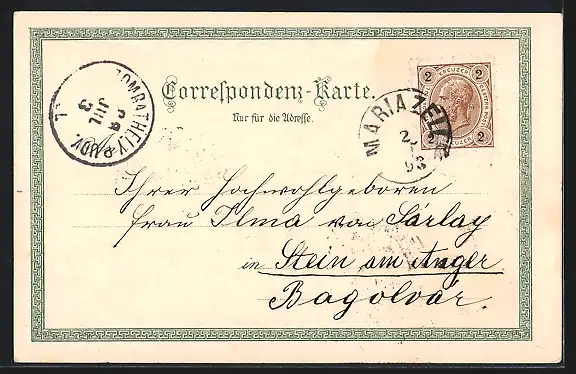 Correspondenz-Karte.
Nur für die Adresse.
2 KREUZER 2
2 2
MARIAZELL
98
SZOMBATHELY P. UDV.
98
JUL
3
Ihrer Hochwohlgeboren
Frau Ilma von Sárlay
in Stein am Anger
Bagolvár.